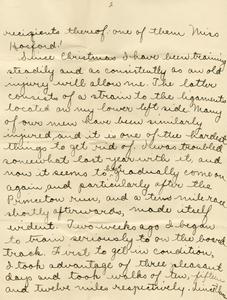 2
recipients thereof: one of them Miss
Hosford!
Since Christmas I have been training
steadily and as consistently as an old
injury will allow me. The latter
consists of a strain to the ligaments
located on my lower left side. Many
of our men have been similarly
injured and it is one of the hardest
things to get rid of. I was troubled
somewhat last year with it, and
now it seems to gradually come on
again and particularly after the
Princeton run, and a two mile race
shortly afterwards, made itself
evident. Two weeks ago I began
to train seriously on the board
track. First to get in condition,
I took advantage of three pleasant
days and took walks of ten, fifteen
and twelve miles respectively. Since then